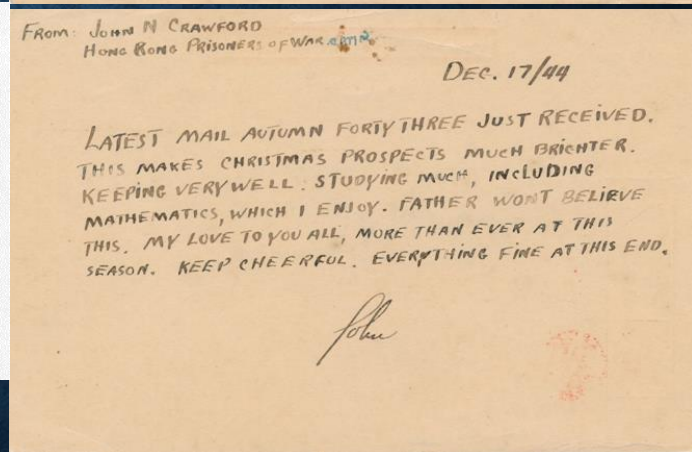 FROM: JOHN N CRAWFORD
HONG KONG PRISONERS OF WAR
DEC. 17/44
LATEST MAIL AUTUMN FORTY THREE JUST RECEIVED.
THIS MAKES CHRISTMAS PROSPECTS MUCH BRIGHTER.
KEEPING VERY WELL. STUDYING MUCH, INCLUDING
MATHEMATICS, WHICH I ENJOY. FATHER WONT BELIEVE
THIS. MY LOVE TO YOU ALL, MORE THAN EVER AT THIS
SEASON. KEEP CHEERFUL. EVERYTHING FINE AT THIS END.
John